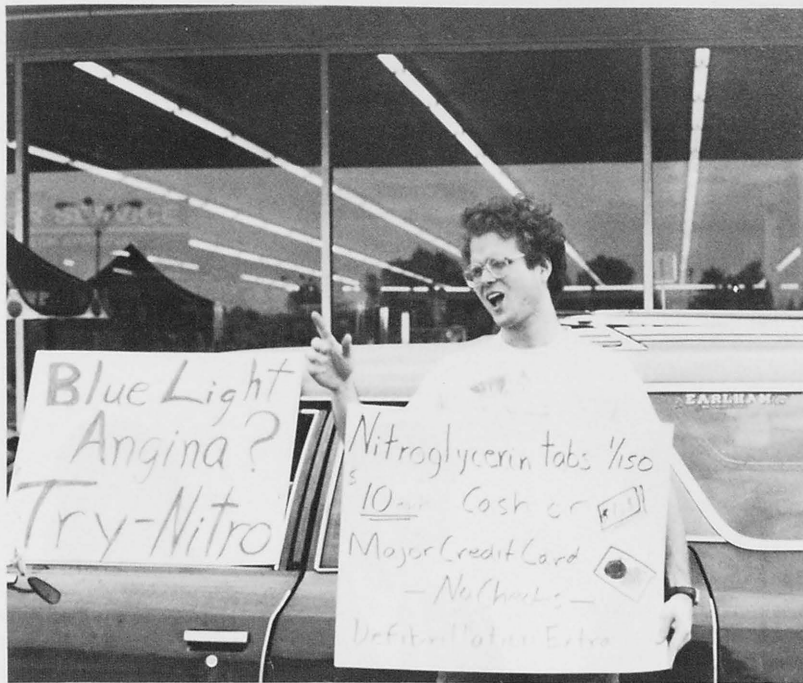 R SERVICE
Blue Light
Angina?
Try-Nitro
EARLHAM
Nitroglycerin tabs 1/150
$10 Cash or
Major Credit Card
- No Checks -
Defibrillation Extra